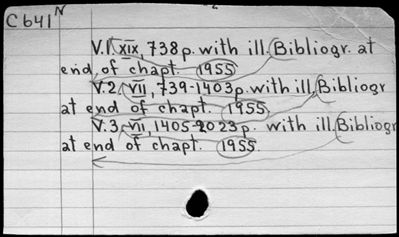 C641 N
V.1. xix, 738 p. with ill. Bibliogr. at
end of chapt. 1955
V.2. vii, 739-1403 p. with ill. Bibliogr
at end of chapt. 1955.
V.3. vii, 1405-2023 p. with ill. Bibliogr
at end of chapt. 1955.